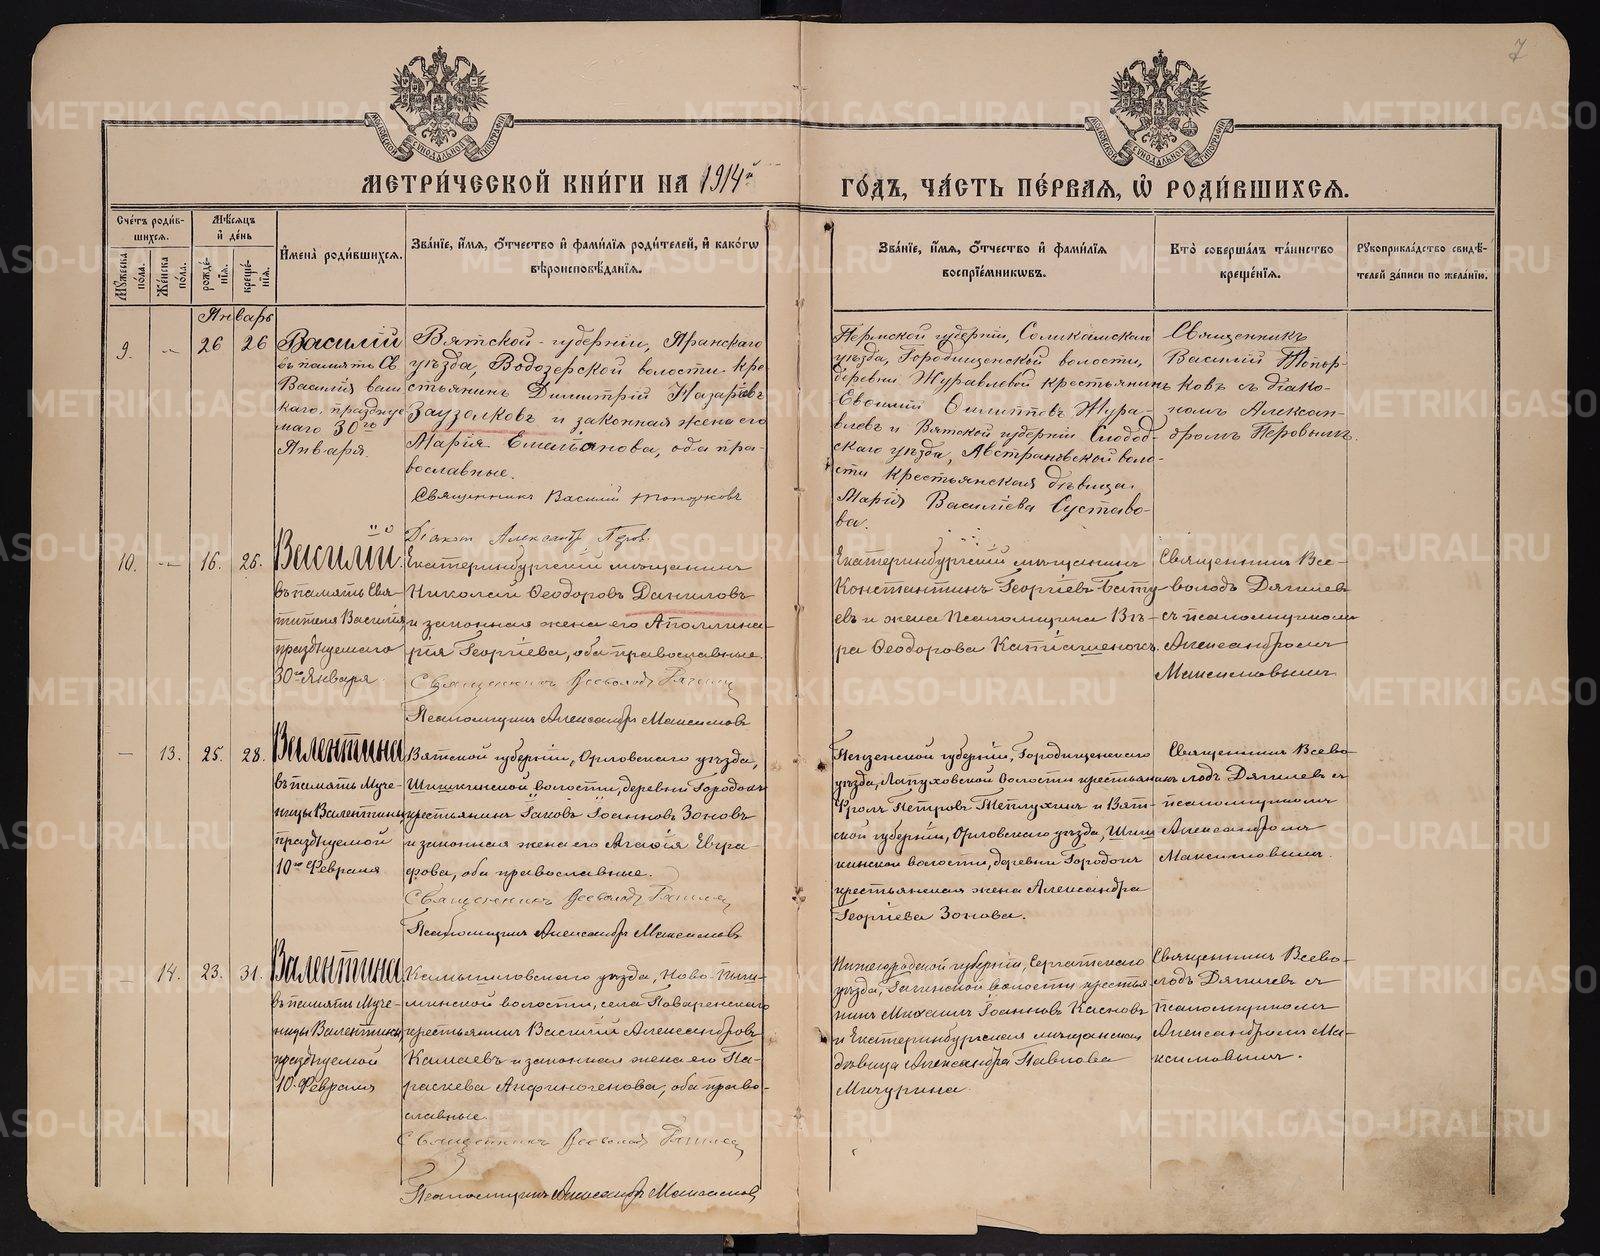 7
МЕТРИ́ЧЕСКОЙ КНИ́ГИ НА 1914й
ГО́ДЪ, ЧА́СТЬ ПЕ́РВАЯ, Ѿ РОДИ́ВШИХСЯ.
Сче́тъ роди́в-
шихся.
Му́жеска
по́ла.
Же́нска
по́ла.
Мѣ́сяцъ
и҆ де́нь
рожде́-
нія.
креще́-
нія.
И҆мена̀ роди́вшихся.
Зва́нїе, и҆́мя, ѻ҆́тчество и҆ фами́лїя роди́телей, и҆ како́гѡ
вѣроисповѣ́данїя.
Зва́нїе, и҆́мя, ѻ҆́тчество и҆ фами́лїя
воспрїе́мниковъ.
Кто̀ соверша́лъ та́инство
креще́нїя.
Рꙋкоприкла́дство свидѣ́-
телей за́писи по жела́нїю.
Январь
9.
26 26
Василій
въ память Св
Василія вели
каго, празднуе
маго 30го
Января.
Вятской губерніи, Яранскаго
уѣзда, Водозерской волости кре
стьянинъ Димитрій Назаріевъ
Заузолковъ и законная жена его
Марія Емельянова, оба пра-
вославные.
Священникъ Василій Топорковъ
Діакон Александр Перов.
Пермской губерніи, Соликамскаи
уѣзда, Городищенской волости,
деревни Журавлевой крестьянинъ
Евѳимій Филипповъ Жура-
влевъ и Вятской губерніи Слобод-
скаго уѣзда, воло-
сти крестьянская дѣвица
Марія Василіева Сустаѳо-
ва.
Священникъ
Василій Топор-
ковъ съ діако-
номъ Алексан-
дромъ Перовымъ.
10.
16. 26.
Василій.
въ память Свя-
тителя Василія,
празднуемаго
30го Января.
Екатеринбургскій мѣщанинъ
Николай Ѳеодоровъ Даниловъ
и законная жена его Аполлина-
рія Георгіева, оба православные.
Священникъ Всеволодъ Дягилев
Псаломщикъ Александръ Максимовъ
Екатеринбургскій мѣщанинъ
Константинъ Георгіевъ Бату
евъ и жена псаломщика Вѣ-
ра Ѳеодорова
Священникъ Все-
володъ Дягилевъ
съ псаломщикомъ
Александромъ
Максимовымъ
13.
25. 28.
Валентина
въ память Муче-
ницы Валентины
празднуемой
10го Февраля
Вятской губерніи, Орловскаго уѣзда,
Шишкинской волости, деревни Городокъ
крестьянинъ Іаковъ Іоанновъ Зоновъ
и законная жена его Агаѳія Евгра-
фова, оба православные.
Священникъ Всеволодъ Дягилев
Псаломщикъ Александръ Максимовъ
Пензенской губерніи, Городищенскаго
уѣзда, Лопуховской волости крестьянинъ
Фролъ Петровъ Теплухинъ и Вят-
ской губерніи, Орловскаго уѣзда, Шиш
кинской волости, деревни Городокъ
крестьянская жена Александра
Георгіева Зонова.
Священникъ Всево-
лодъ Дягилевъ съ
псаломщикомъ
Александромъ
Максимовымъ.
14.
23. 31.
Валентина
въ память Муче-
ницы Валентины,
празднуемой
10 Февраля
Камышловскаго уѣзда, Ново-Пыш-
минской волости, села Поваренскаго
крестьянинъ Василій Александровъ
Камаевъ и законная жена его Па-
раскева Анфиногенова, оба право-
славные.
Священникъ Всеволодъ Дягилев
Псаломщикъ Александръ Максимовъ
Нижегородской губерніи, Сергачскаго
уѣзда, Гагинской волости крестья
нинъ Михаилъ Іоанновъ Касновъ
и Екатеринбургская мѣщанская
дѣвица Александра Павлова
Мичурина.
Священникъ Всево-
лодъ Дягилевъ съ
псаломщикомъ
Александромъ Ма-
ксимовымъ.
METRIKI.GASO-URAL.RU